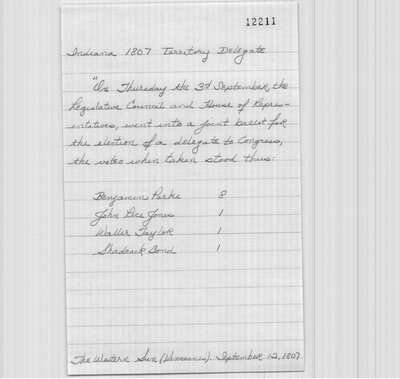 12211
Indiana 1807 Territory Delegate
"On Thursday the 3d September, the
Legislative Council and House of Repres-
entatives, went into a joint ballot for
the election of a delegate to Congress,
the votes when taken stood thus:
Benjamin Parke 8
John Rice Jones 1
Waller Taylor 1
Shadrack Bond 1
The Western Sun (Vincennes). September 12, 1807.